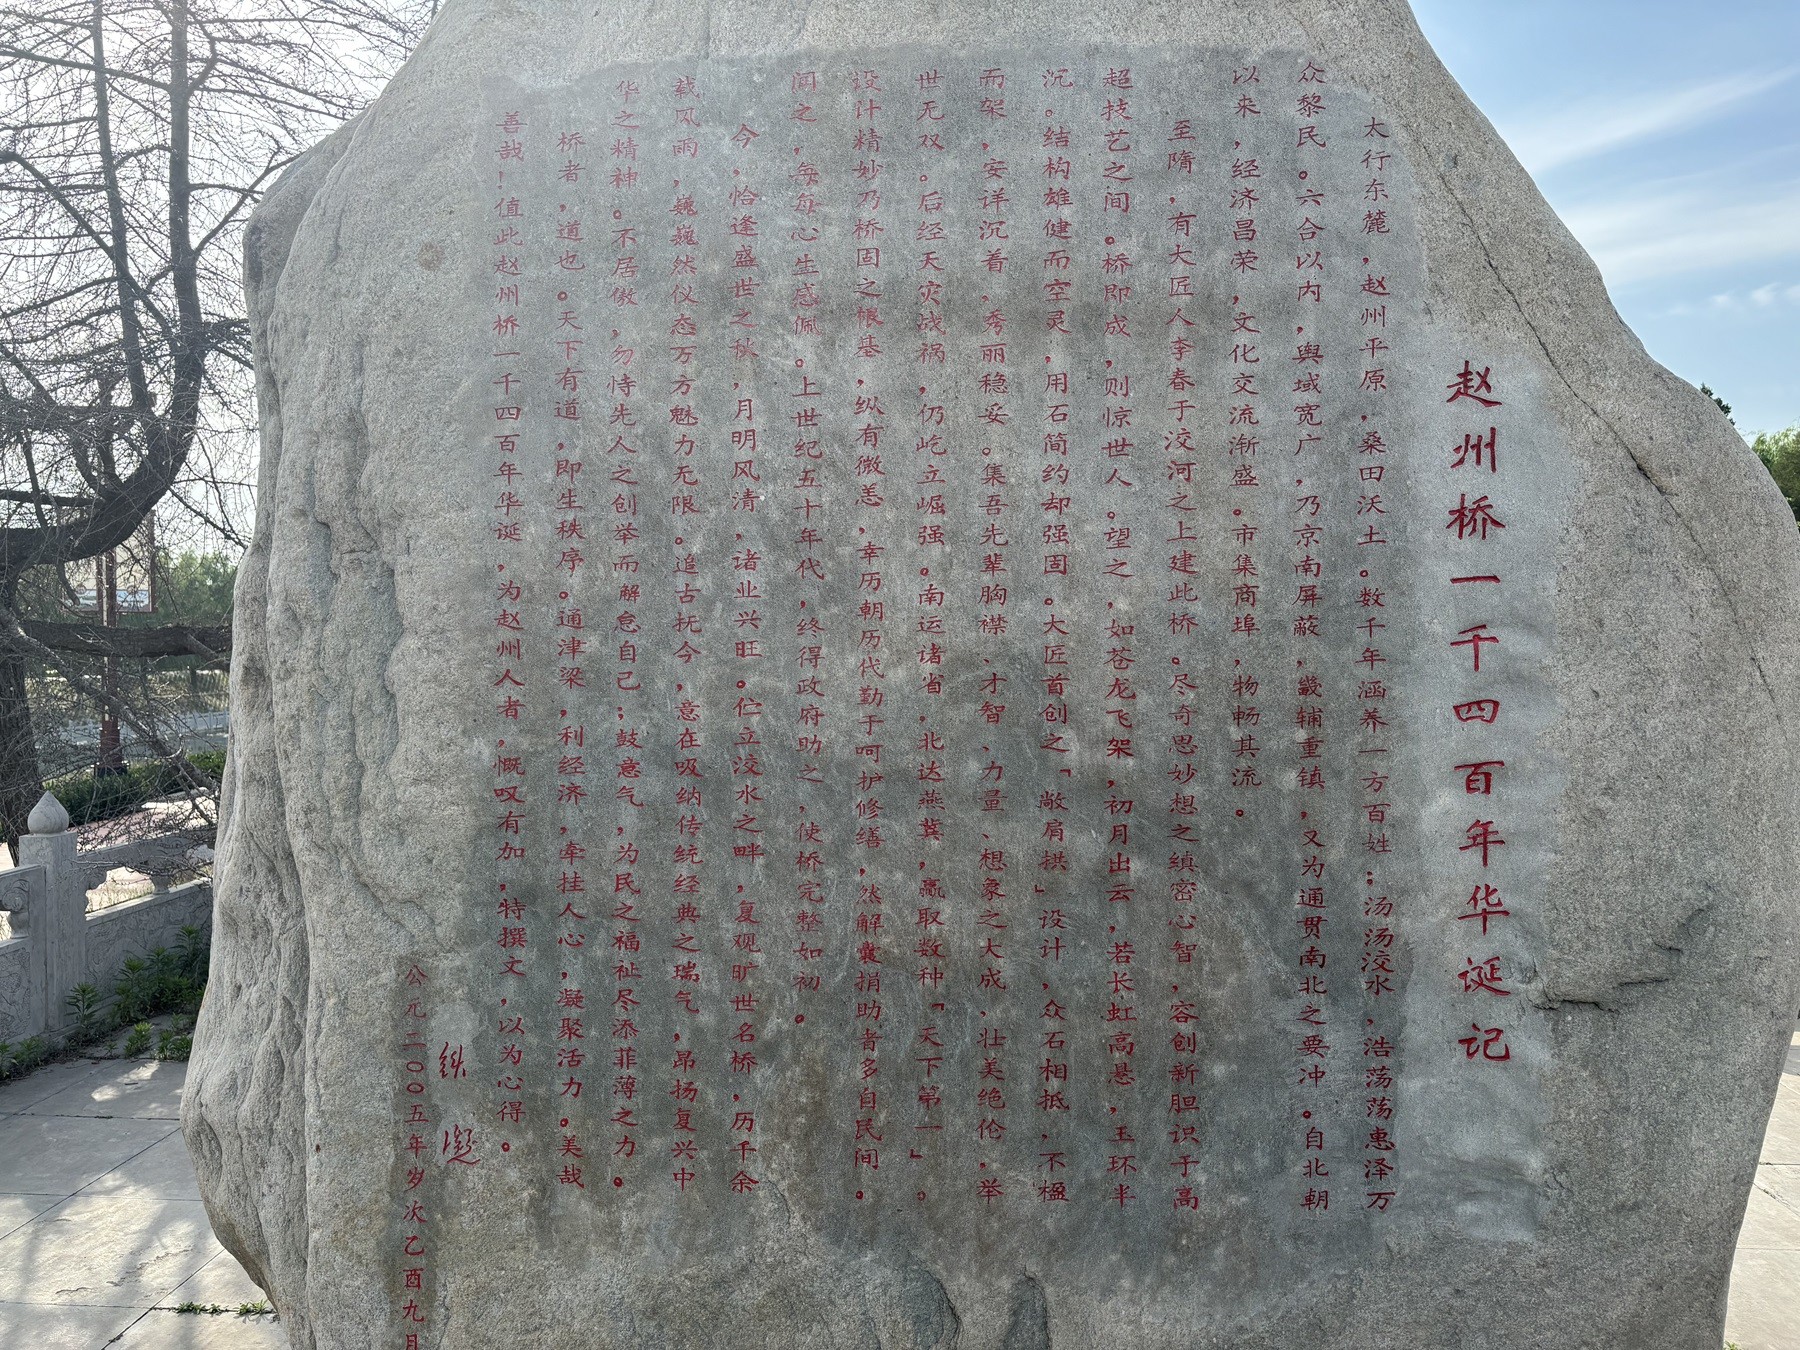 赵州桥一千四百年华诞记
太行东麓，赵州平原，桑田沃土。数千年涵养一方百姓；汤汤洨水，浩荡荡惠泽万
众黎民。六合以内，舆域宽广，乃京南屏蔽，畿辅重镇，又为通贯南北之要冲。自北朝
以来，经济昌荣，文化交流渐盛。市集商埠，物畅其流。
至隋，有大匠人李春于洨河之上建此桥。尽奇思妙想之缜密心智，容创新胆识于高
超技艺之间。桥即成，则惊世人。望之，如苍龙飞架，初月出云，若长虹高悬，玉环半
沉。结构雄健而空灵，用石简约却强固。大匠首创之「敞肩拱」设计，众石相抵，不楹
而架，安详沉着，秀丽稳妥。集吾先辈胸襟、才智、力量、想象之大成，壮美绝伦，举
世无双。后经天灾战祸，仍屹立崛强。南运诸省，北达燕冀，赢取数种「天下第一」。
设计精妙乃桥固之根基，纵有微恙，幸历朝历代勤于呵护修缮，然解囊捐助者多自民间。
闻之，每每心生感佩。上世纪五十年代，终得政府助之，使桥完整如初。
今，恰逢盛世之秋，月明风清，诸业兴旺。伫立洨水之畔，复观旷世名桥，历千余
载风雨，巍巍然仪态万方魅力无限。追古抚今，意在吸纳传统经典之瑞气，昂扬复兴中
华之精神。不居傲，勿恃先人之创举而解怠自己；鼓意气，为民之福祉尽添菲薄之力。
桥者，道也。天下有道，即生秩序。通津梁，利经济，牵挂人心，凝聚活力。美哉
善哉！值此赵州桥一千四百年华诞，为赵州人者，慨叹有加，特撰文，以为心得。
公元二〇〇五年岁次乙酉九月